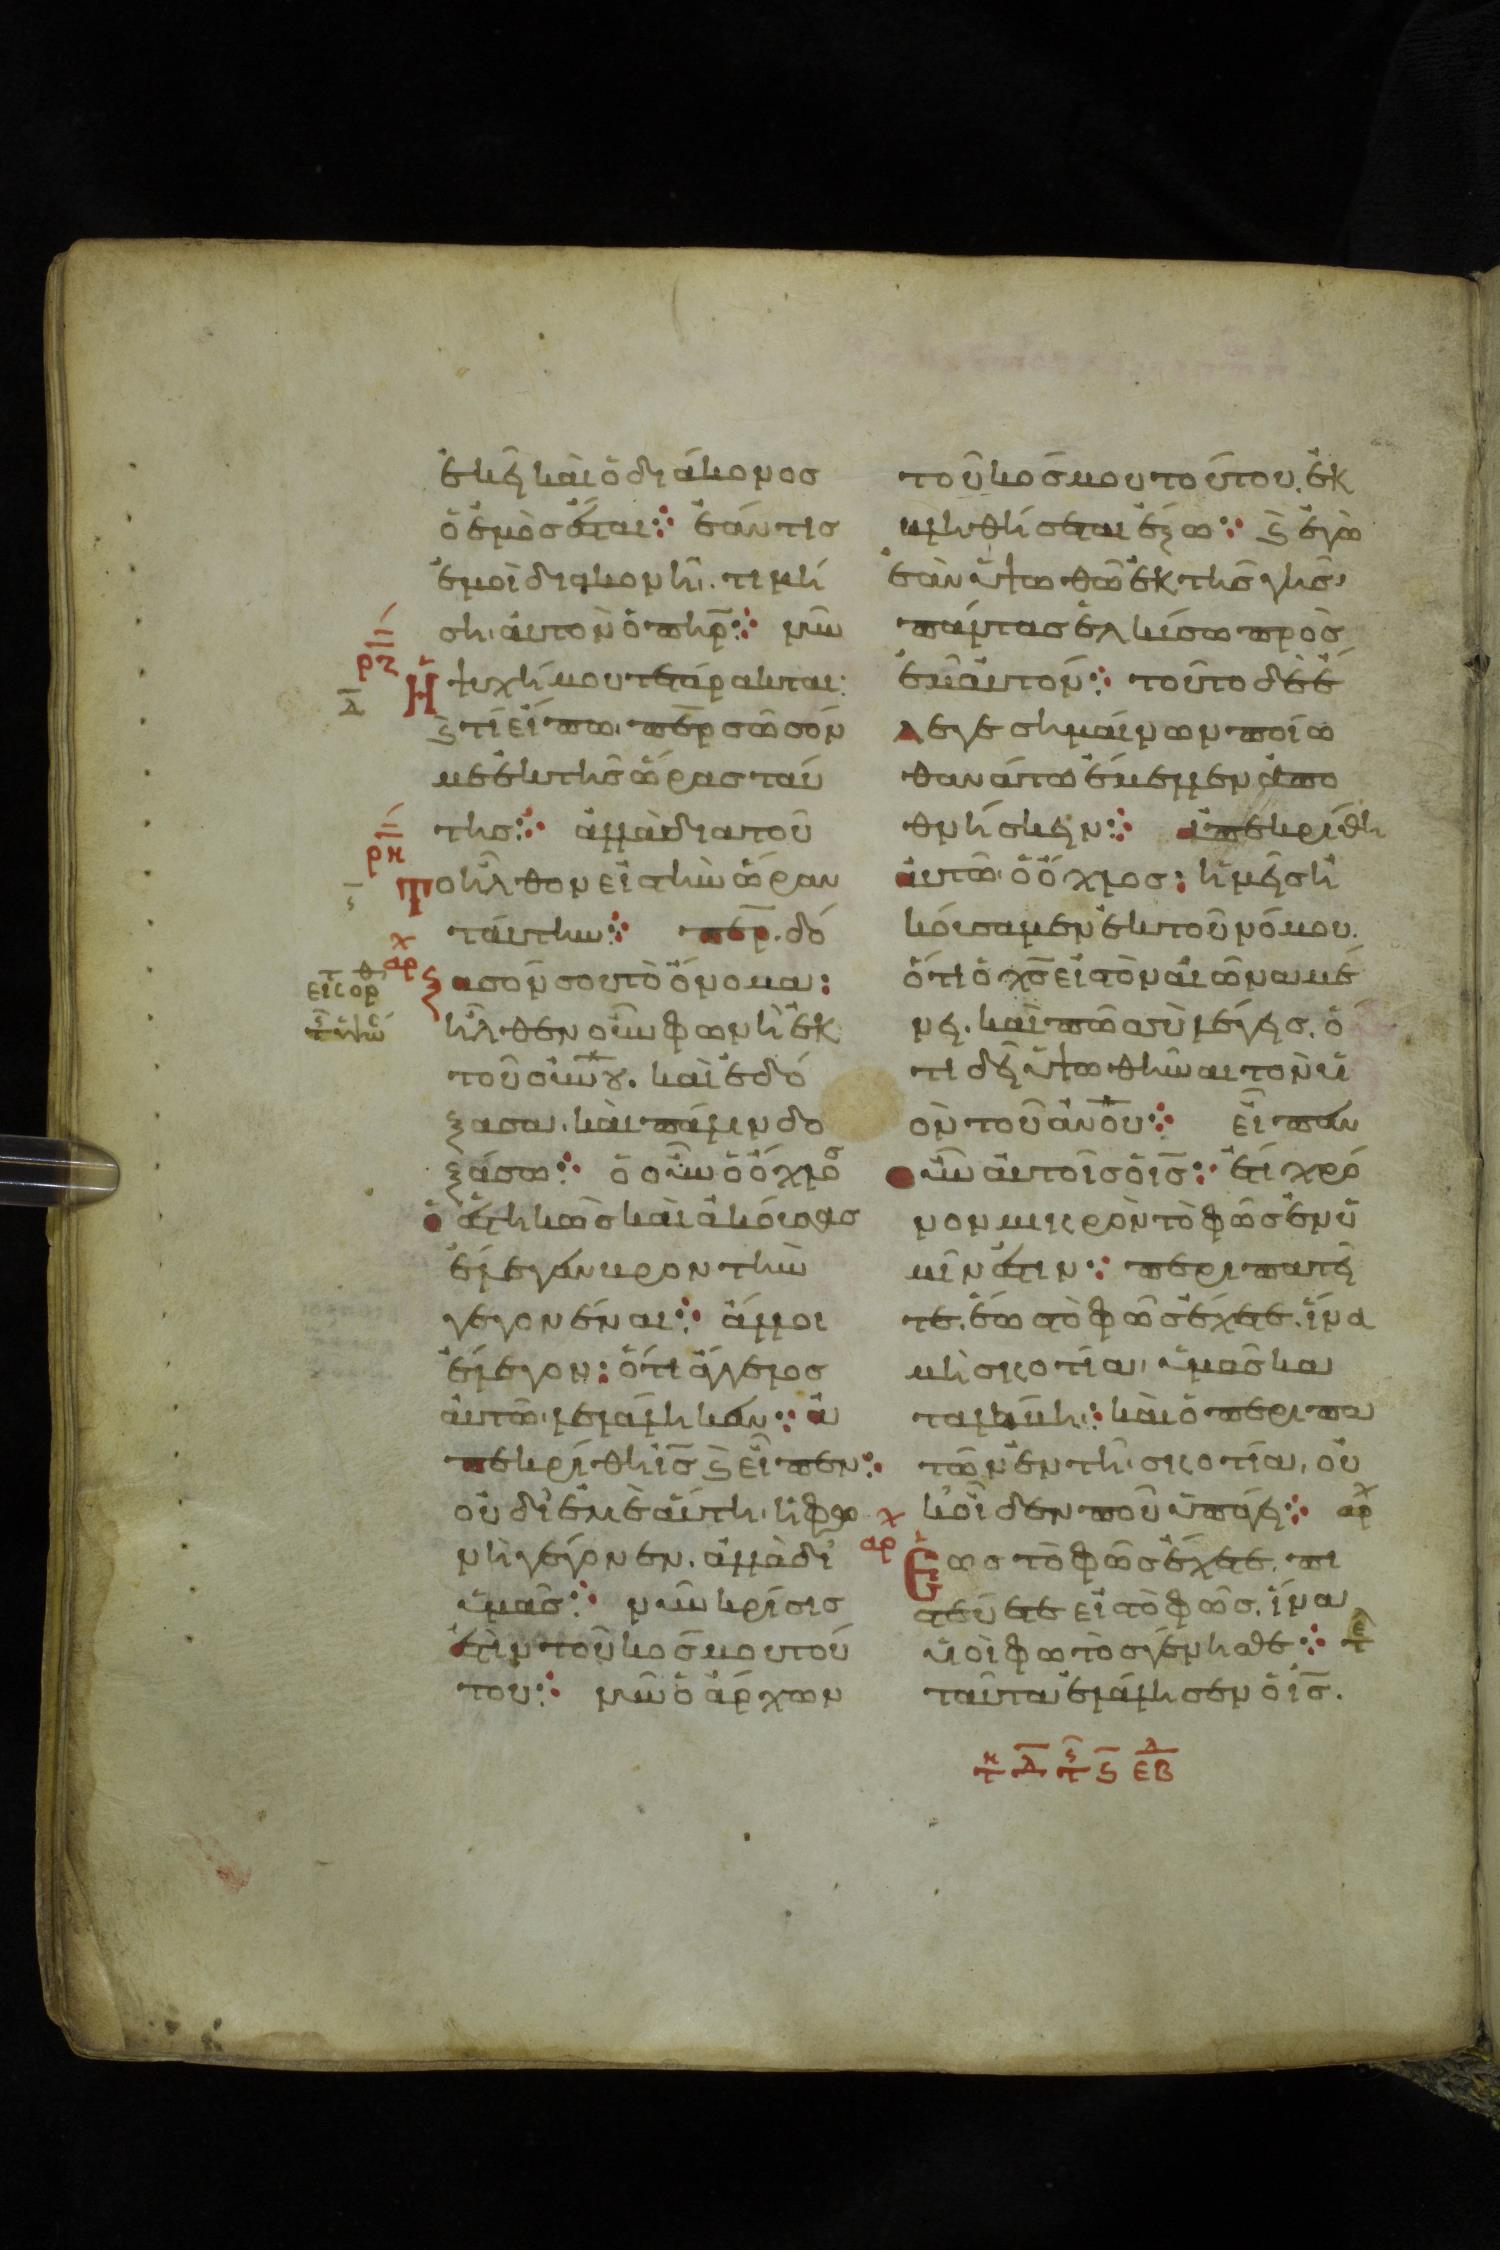 ἐκεῖ καὶ ὁ διάκονος
ὁ ἐμὸς ἔσται· ἐάν τις
ἐμοὶ διακονῆ. τιμή
ση αὐτὸν ὁ πηρ· νῦν
Η ψυχή μου τετάρακται·
ϛ τί εἴπω. περ σῶσόν
με ἐκ τῆς ὥρας ταύ
της· ἀλλὰ διατοῦ
Το ἦλθον εἰς τὴν ὥραν
ταύτην· περ. δό
ξασόν σου τὸ ὄνομα:
ἦλθεν οὖν φωνὴ ἐκ
τοῦ οὐνου. καὶ ἐδό
ξασα. καὶ πάλιν δο
ξάσω· ὁ οὖν ὁ ὄχλος
ὁ ἑστηκὼς καὶ ἀκούσας
ἔλεγον βροντὴν
γεγονέναι· ἄλλοι
ἔλεγον: ὅτι ἄγγελος
αὐτῶ λελάληκεν· ἀ
πεκρίθη ις ϛ εἶπεν·
οὐ δι ἐμὲ αὕτη ἡ φω
νὴ γέγονεν. ἀλλὰ δι
ὑμᾶς· νῦν κρίσις
ἐστὶν τοῦ κόσμου τού
του· νῦν ὁ ἄρχων
τοῦ κόσμου τούτου. ἐκ
βληθήσεται ἔξω· ϛ ἐγὼ
ἐὰν ὑψωθῶ ἐκ τῆς γῆς
πάντας ἑλκύσω πρὸς
ἐμαυτόν· τοῦτο δὲ ἔ
λεγε σημαίνων ποίω
θανάτω ἔμελλεν ἀπο
θνήσκειν· ἀπεκρίθη
αὐτῶ ὁ ὄχλος: ἡμεῖς ἠ
κούσαμεν ἐκ τοῦ νόμου.
ὅτι ὁ χς εἰς τὸν αἰῶνα μέ
νει. καὶ πῶς σὺ λέγεις. ὅ
τι δεῖ ὑψωθῆναι τὸν υἱ
ὸν τοῦ ἀνου· εἶπεν
οὖν αὐτοῖς ὁ ις· ἔτι χρό
νον μικρὸν τὸ φῶς ἐν ὑ
μῖν ἐστιν· περιπατεῖ
τε. ἕως τὸ φῶς ἔχετε. ἵνα
μὴ σκοτία ὑμᾶς κα
ταλάβη· καὶ ὁ περιπα
τῶν ἐν τῆ σκοτία, οὐ
κ οἶδεν ποῦ ὑπάγει· αρχ
Εως τὸ φῶς ἔχετε. πι
στεύετε εἰς τὸ φῶς. ἵνα
υἱοὶ φωτὸς γένησθε·
ταῦτα ἐλάλησεν ὁ ις.